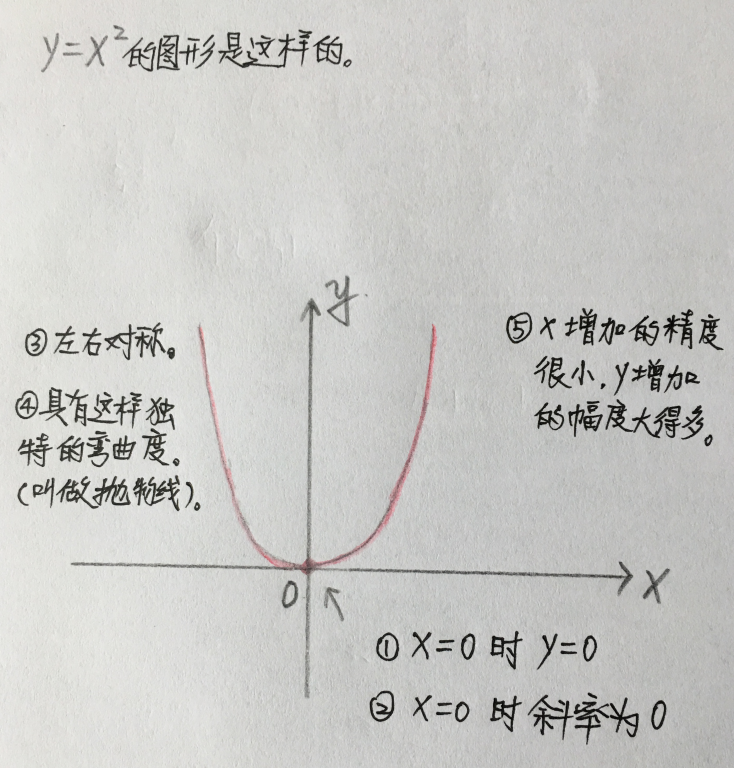 y=x²的图形是这样的。
y
③左右对称。
④具有这样独
特的弯曲度。
(叫做抛物线)。
⑤x增加的精度
很小,y增加
的幅度大得多。
0
x
①x=0时y=0
②x=0时斜率为0